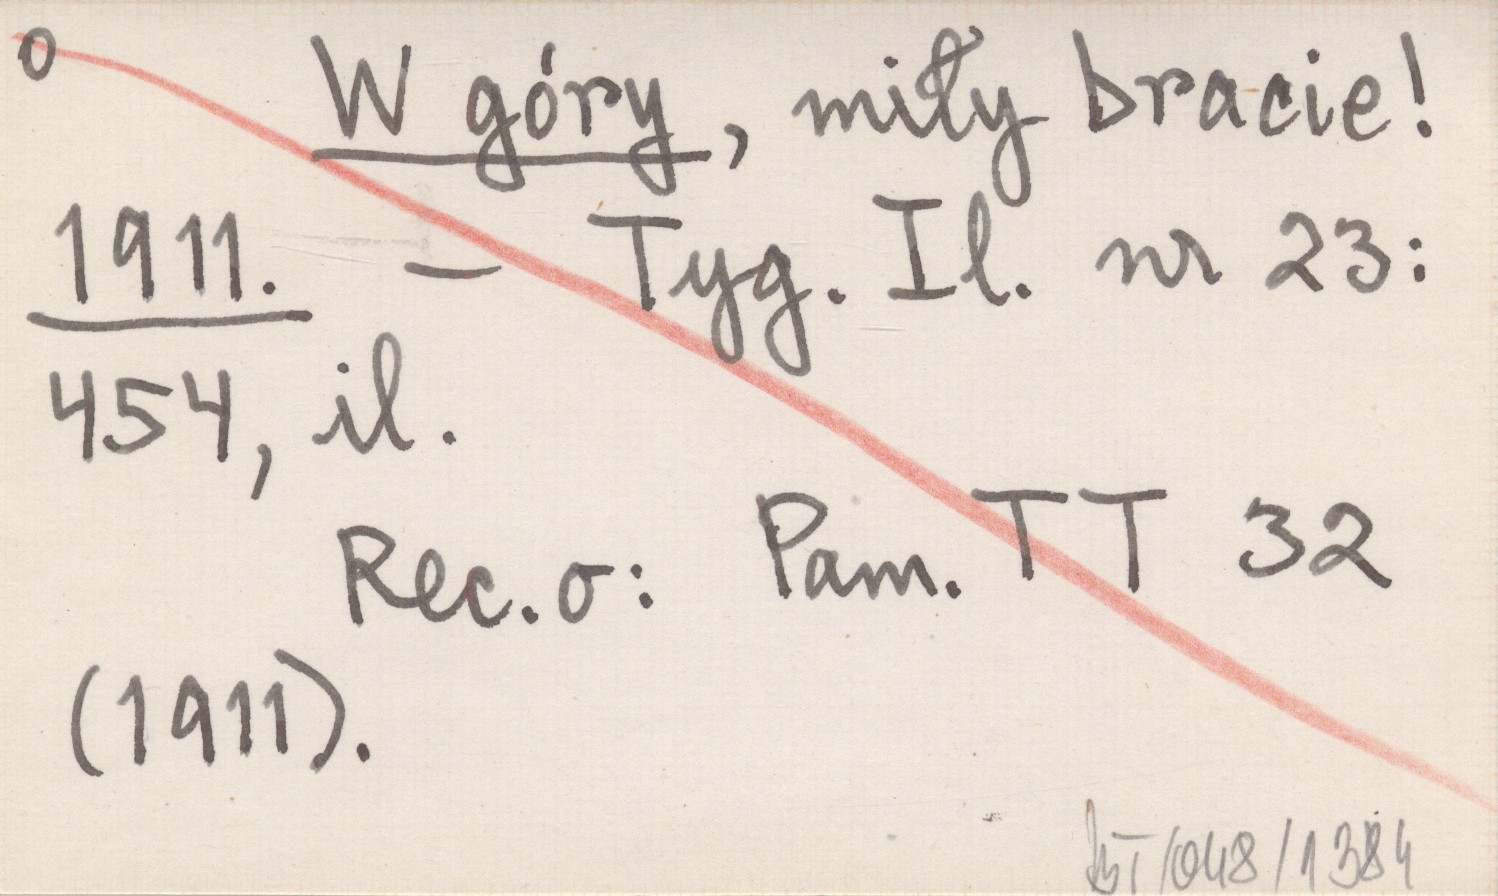 o W góry, miły bracie!
1911. – Tyg. Il. nr 23:
454, il.
Rec. o: Pam. TT 32
(1911).
/048/1384